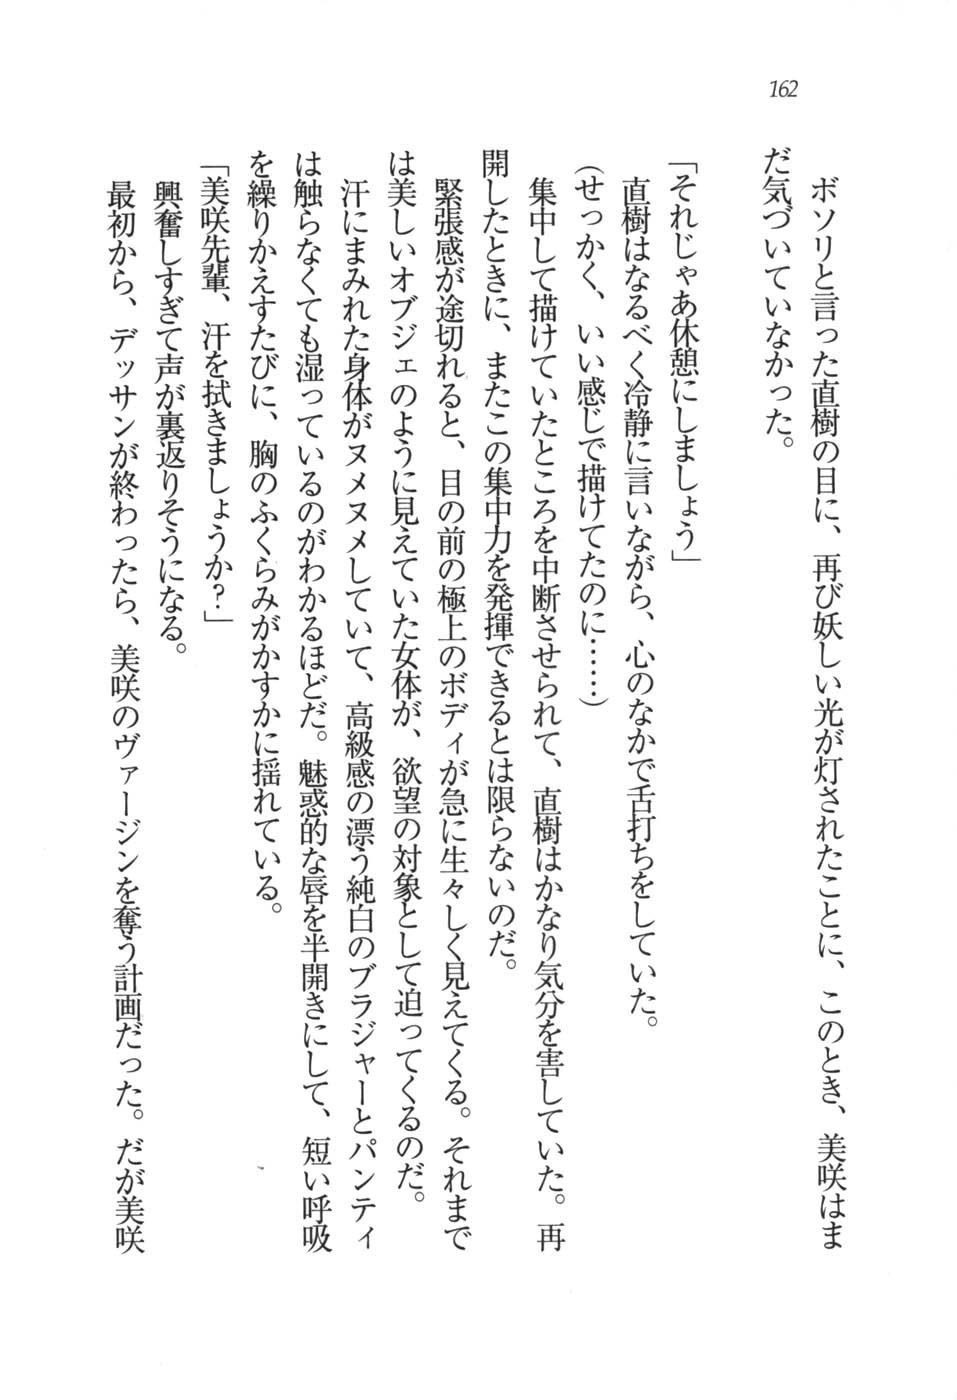 162
ボソリと言った直樹の目に、再び妖しい光が灯されたことに、このとき、美咲はま
だ気づいていなかった。
「それじゃあ休憩にしましょう」
直樹はなるべく冷静に言いながら、心のなかで舌打ちをしていた。
(せっかく、いい感じで描けてたのに……)
集中して描けていたところを中断させられて、直樹はかなり気分を害していた。再
開したときに、またこの集中力を発揮できるとは限らないのだ。
緊張感が途切れると、目の前の極上のボディが急に生々しく見えてくる。それまで
は美しいオブジェのように見えていた女体が、欲望の対象として迫ってくるのだ。
汗にまみれた身体がヌメヌメしていて、高級感の漂う純白のブラジャーとパンティ
は触らなくても湿っているのがわかるほどだ。魅惑的な唇を半開きにして、短い呼吸
を繰りかえすたびに、胸のふくらみがかすかに揺れている。
「美咲先輩、汗を拭きましょうか?」
興奮しすぎて声が裏返りそうになる。
最初から、デッサンが終わったら、美咲のヴァージンを奪う計画だった。だが美咲